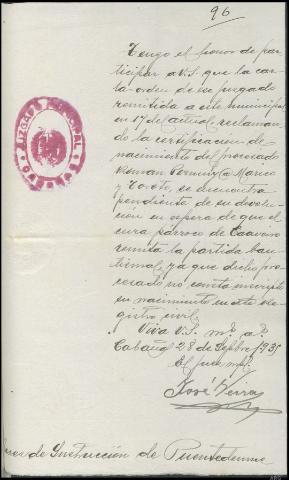 96
Tengo el honor de par-
ticipar a V.S. que la car-
ta-orden de ese juzgado
remitida a este municipal
en 17 del actual, reclaman-
do la certificacion de
nacimiento del procesado
Roman
y se encuentra
pendiente de su devolu-
ción en espera de que el
cura parroco de Caaveiro
remita la partida bau-
tismal, ya que dicho pro-
cesado no consta inscripto
su nacimiento en este re-
gistro civil.
Viva V.S. ms. as.
Cabañas 28 de Sepbre 1935
El juez mpl.
José Veiras
JUZGADO MUNICIPAL
CABAÑAS
de Instrucción de Puentedeume